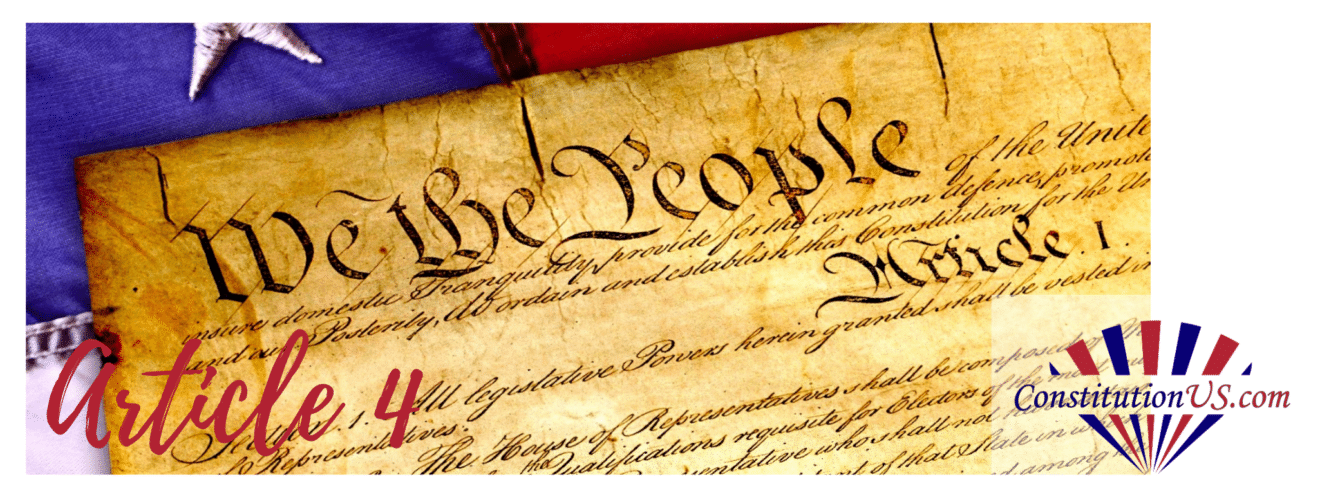 We the People of the Unite
insure domestic Tranquility, provide for the common defence, promote
and our Posterity, do ordain and establish this Constitution for the Un
Article. I.
Section. 1. All legislative Powers herein granted shall be vested in
Representatives.
The House of Representatives shall be composed of
the Qualifications requisite for Electors of the most
who shall not
of that State in
among the
Article 4
ConstitutionUS.com